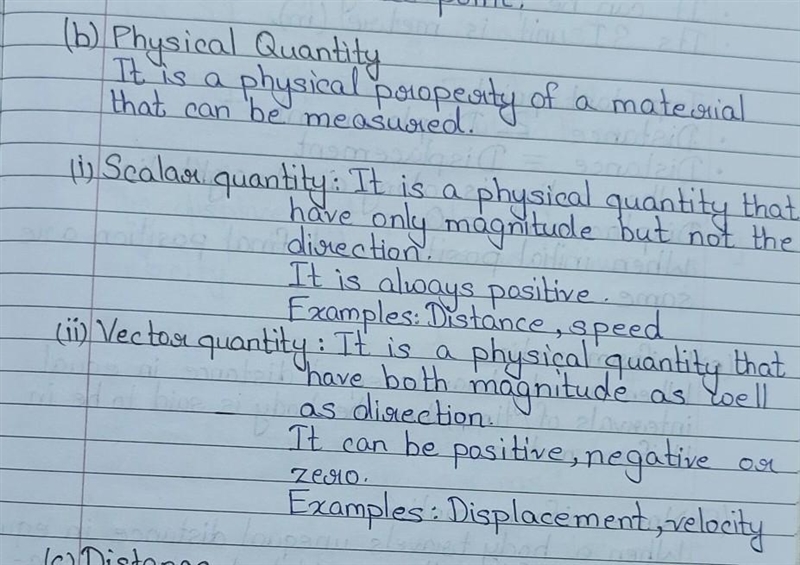 point.
(b) Physical Quantity
It is a physical property of a material
that can be measured.
(i) Scalar quantity: It is a physical quantity that
have only magnitude but not the
direction.
It is always positive.
Examples: Distance, speed
(ii) Vector quantity: It is a physical quantity that
have both magnitude as well
as direction.
It can be positive, negative or
zero.
Examples: Displacement, velocity
(c) Distance